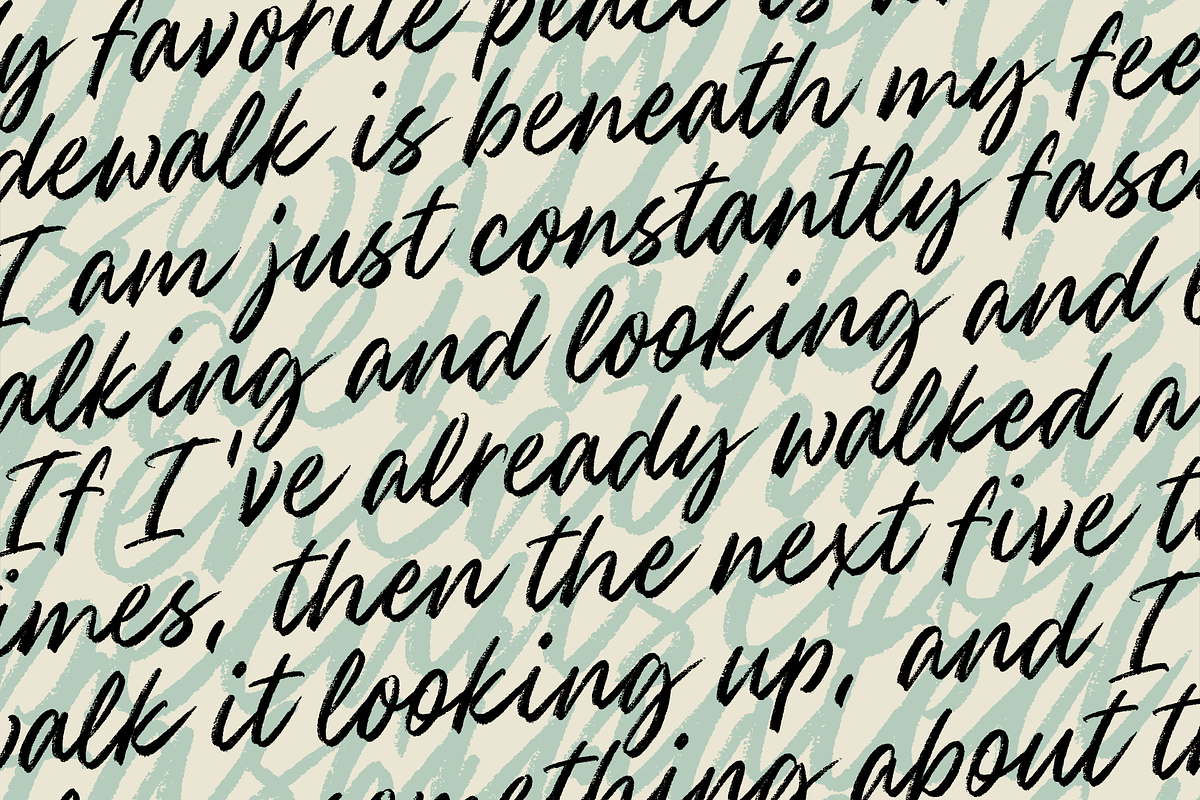 y favorite place is
dewalk is beneath my fee
I am just constantly fasc
alking and looking and
If I've already walked a
imes, then the next five t
walk it looking up, and I
something about th